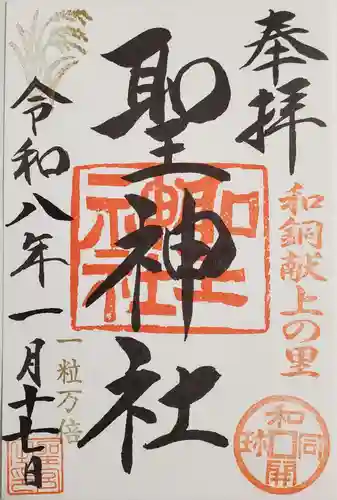 奉拝
和銅献上の里
聖神社
聖神社
和同開珎
一粒万倍
令和八年一月十七日